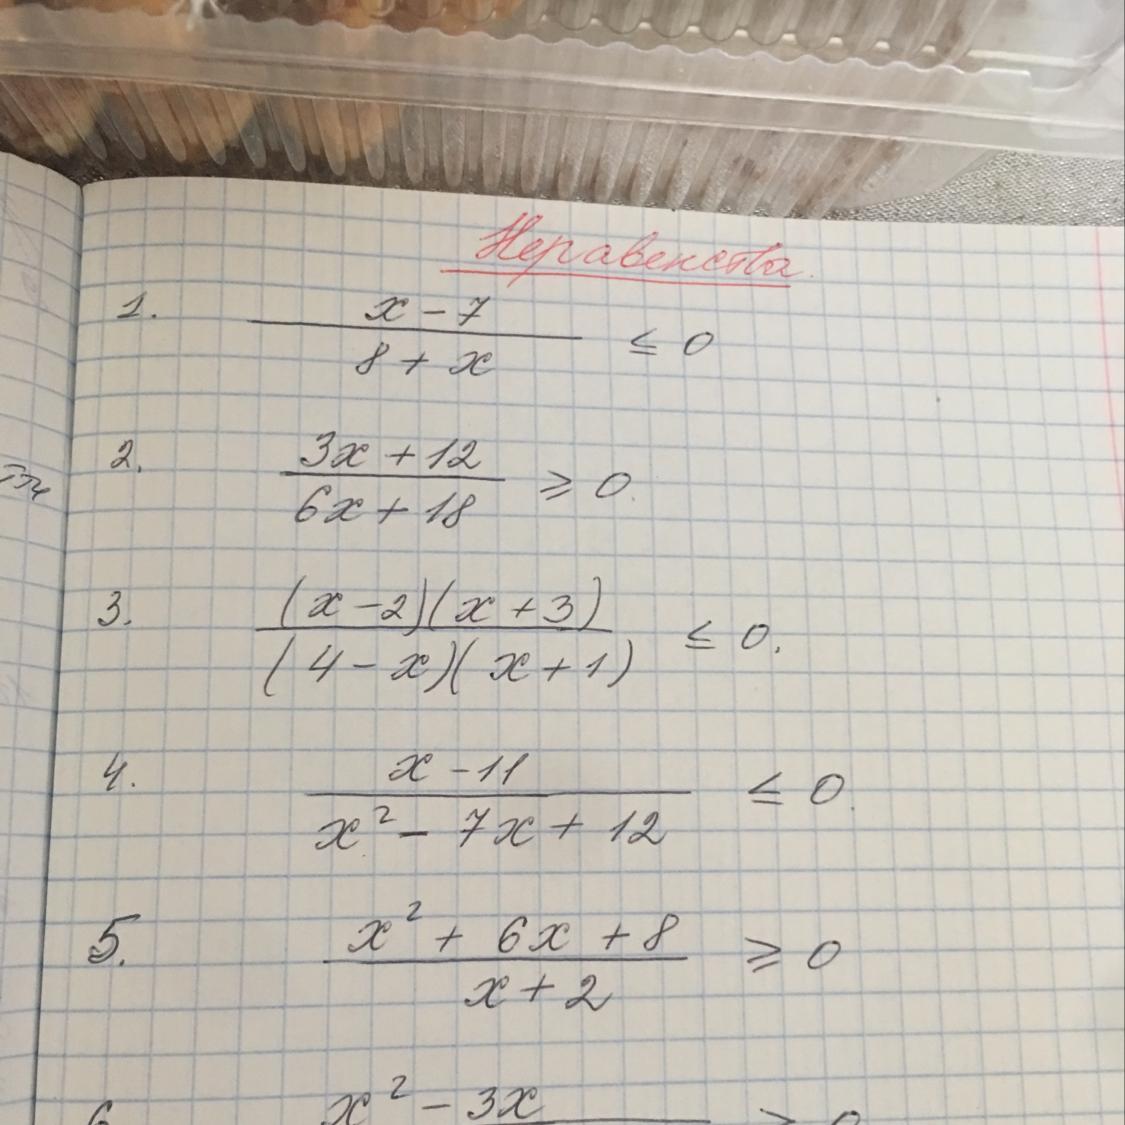 Неравенства.
1. x - 7
8 + x ≤ 0
2. 3x + 12
6x + 18 ≥ 0.
3. (x - 2)(x + 3)
(4 - x)(x + 1) ≤ 0.
4. x - 11
x² - 7x + 12 ≤ 0.
5. x² + 6x + 8
x + 2 ≥ 0
6. x² - 3x